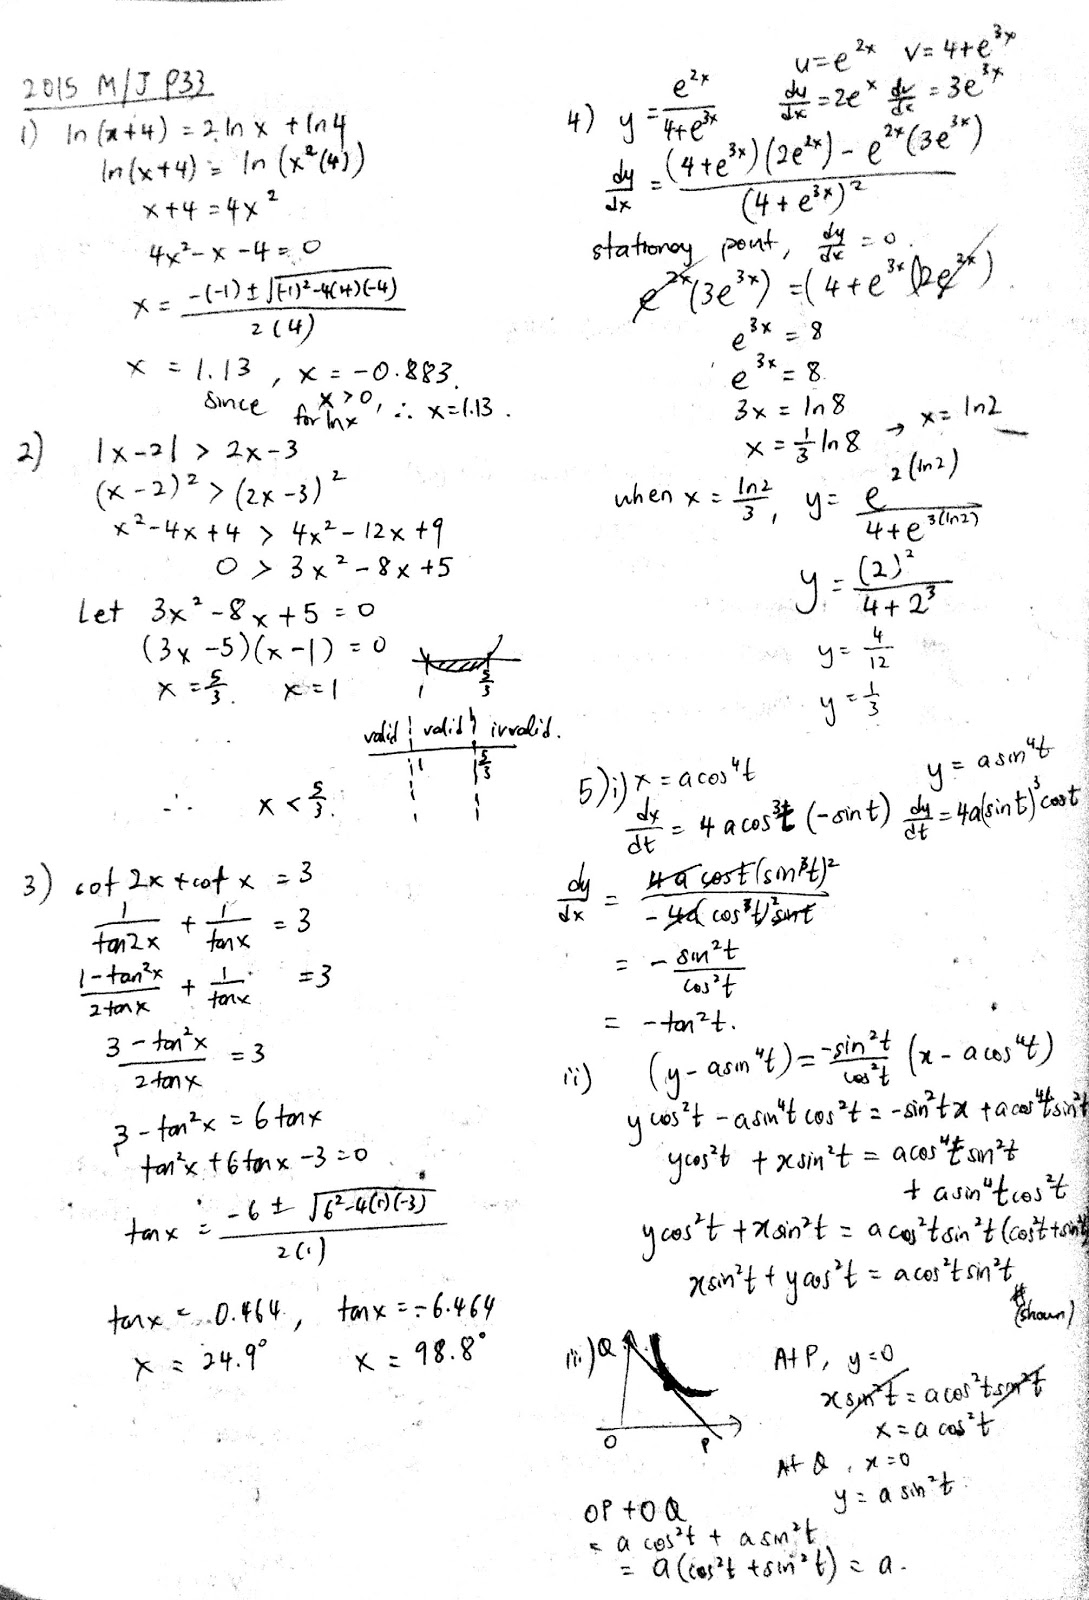 2015 M/J P33
1) ln(x+4) = 2 ln x + ln 4
ln(x+4) = ln (x²(4))
x+4 = 4x²
4x² - x - 4 = 0
x = (-(-1) ± √((-1)² - 4(4)(-4))) / 2(4)
x = 1.13 , x = -0.883.
since x>0, for ln x ∴ x=1.13.
2) |x-2| > 2x-3
(x-2)² > (2x-3)²
x²-4x+4 > 4x²-12x+9
0 > 3x²-8x+5
Let 3x²-8x+5=0
(3x-5)(x-1) = 0
x = 5/3. x=1
1 5/3
valid valid invalid.
1 5/3
∴ x < 5/3.
3) cot 2x + cot x = 3
1/tan2x + 1/tanx = 3
(1-tan²x)/2tanx + 1/tanx = 3
(3-tan²x)/2tanx = 3
3-tan²x = 6tanx
tan²x + 6tanx - 3 = 0
tanx = (-6 ± √(6²-4(1)(-3))) / 2(1)
tanx = 0.464, tanx = -6.464
x = 24.9° x = 98.8°
u=e^2x v=4+e^3x
4) y = e^2x/(4+e^3x) du/dx = 2e^x dv/dx = 3e^3x
dy/dx = ((4+e^3x)(2e^2x) - e^2x(3e^3x)) / (4+e^3x)²
stationary point, dy/dx = 0.
e^2x(3e^3x) = (4+e^3x)(2e^2x)
e^3x = 8
e^3x = 8
3x = ln8
x = 1/3 ln8 → x = ln2
when x = ln2/3, y = e^2(ln2) / (4+e^3(ln2))
y = (2)²/(4+2³)
y = 4/12
y = 1/3
5)i) x = acos⁴t y = asin⁴t
dx/dt = 4acos³t(-sint) dy/dt = 4a(sint)³cost
dy/dx = 4a cost(sin³t)² / -4a(cos³t)²sint
= - sin²t/cos²t
= -tan²t.
ii) (y-asin⁴t) = -sin²t/cos²t (x-acos⁴t)
ycos²t - asin⁴tcos²t = -sin²tx + acos⁴tsin²t
ycos²t + xsin²t = acos⁴tsin²t
+ asin⁴tcos²t
ycos²t + xsin²t = acos²tsin²t(cos²t+sin²
xsin²t + ycos²t = acos²tsin²t
# (shown)
iii) Q O P
At P, y=0
xsin²t = acos²tsin²t
x = a cos²t
At Q, x=0
y = a sin²t.
OP + OQ
= a cos²t + a sin²t
= a(cos²t + sin²t) = a.